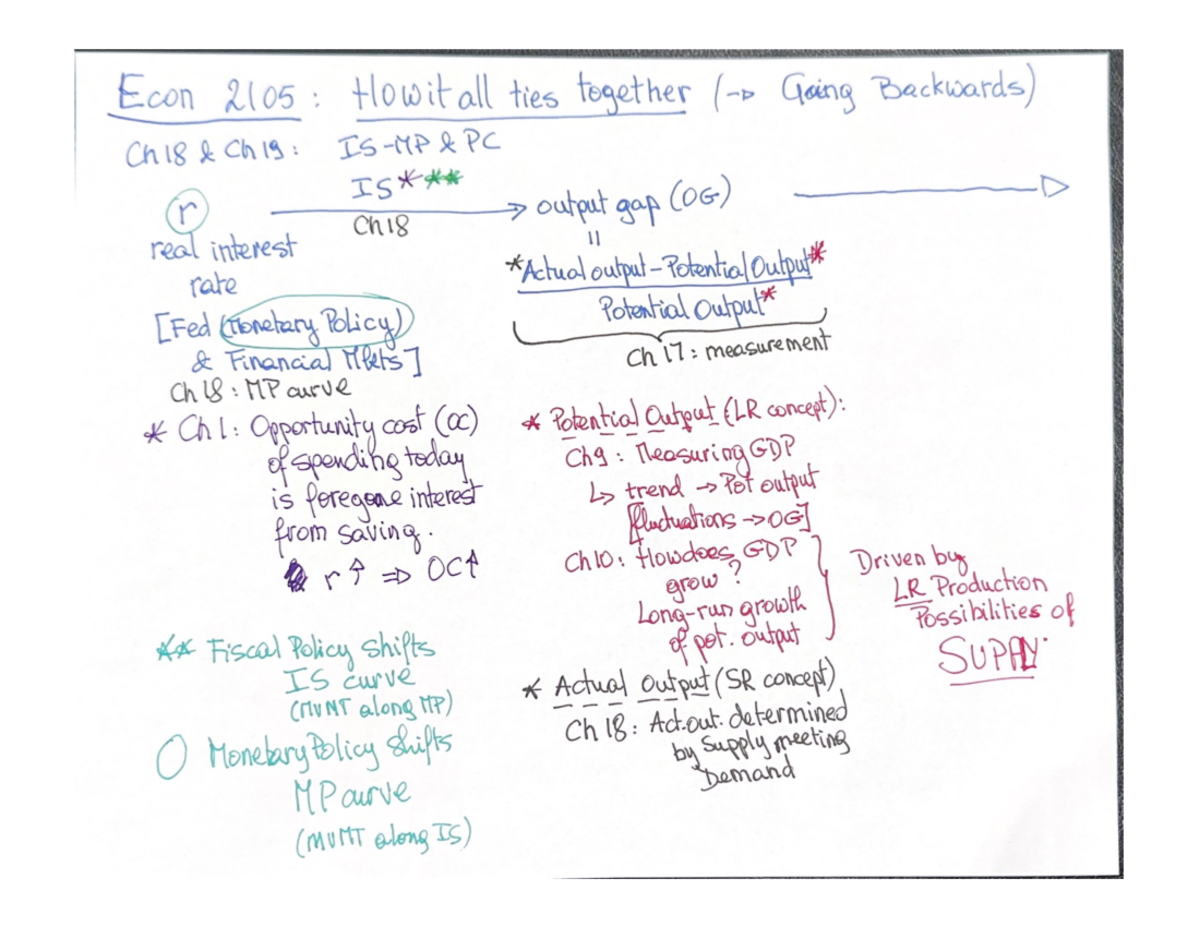 Econ 2105: How it all ties together (→ Going Backwards)
Ch 18 & Ch 19: IS-MP & PC
IS***
r → output gap (OG) →
Ch 18
real interest
rate
=
*Actual output - Potential Output*
Potential Output*
[Fed (Monetary Policy)
& Financial Mkts]
Ch 17: measurement
Ch 18: MP curve
* Ch 1: Opportunity cost (OC)
of spending today
is foregone interest
from saving.
r ↑ ⇒ OC↑
** Fiscal Policy Shifts
IS curve
(MVMT along MP)
Monetary Policy Shifts
MP curve
(MVMT along IS)
* Potential Output (LR concept):
Ch 9: Measuring GDP
↳ trend → Pot output
[fluctuations → OG]
Ch 10: How does GDP
grow?
Long-run growth
of pot. output
Driven by
LR Production
Possibilities of
SUPPLY.
* Actual output (SR concept)
Ch 18: Act.out. determined
by Supply meeting
Demand